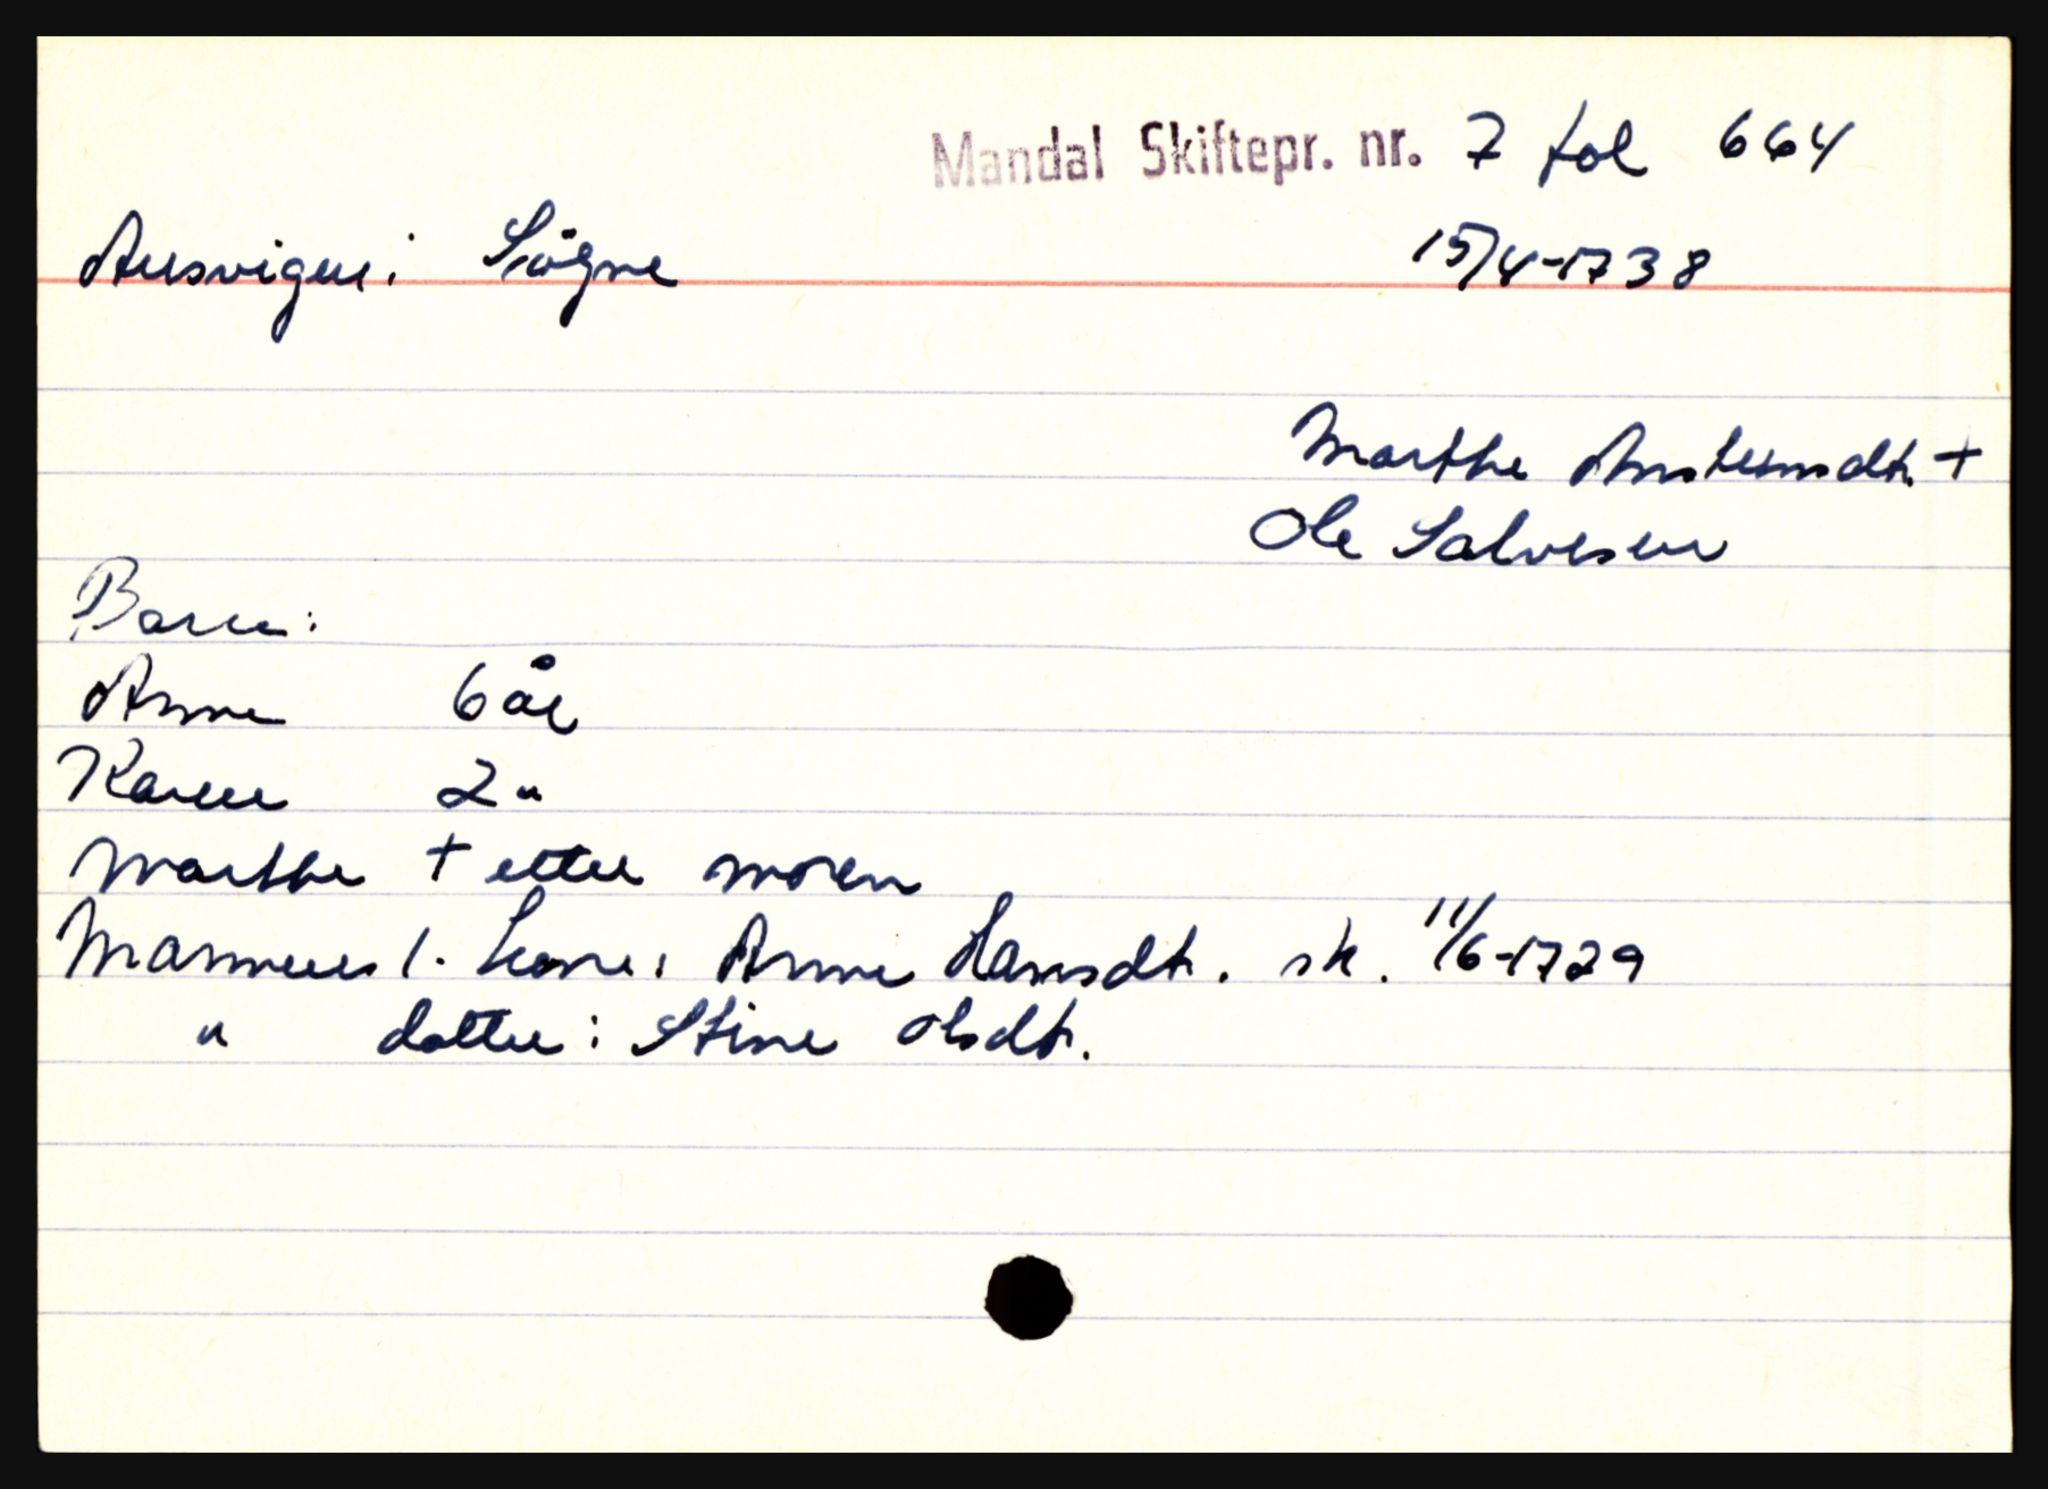 Mandal Skiftepr. nr. 7 fol 664
Ausvigen i Sögne 15/4-1738
Marthe Anstensdtr. +
Ole Salvesen
Barn:
Anne 6 år
Karen 2 "
Marthe + etter moren
Mannens 1. kone: Anne Hansdtr. sk. 11/6-1729
" datter: Stine Olsdtr.